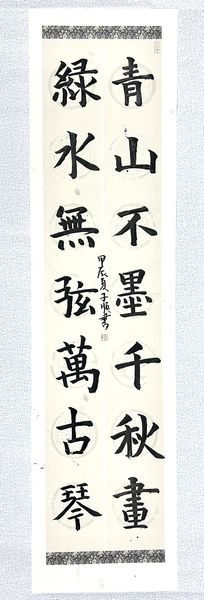 青山不墨千秋畫
綠水無弦萬古琴
甲辰夏子順書